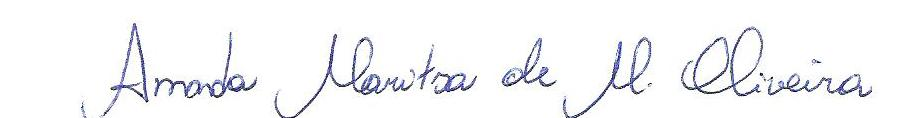 Amanda Maritza de M. Oliveira